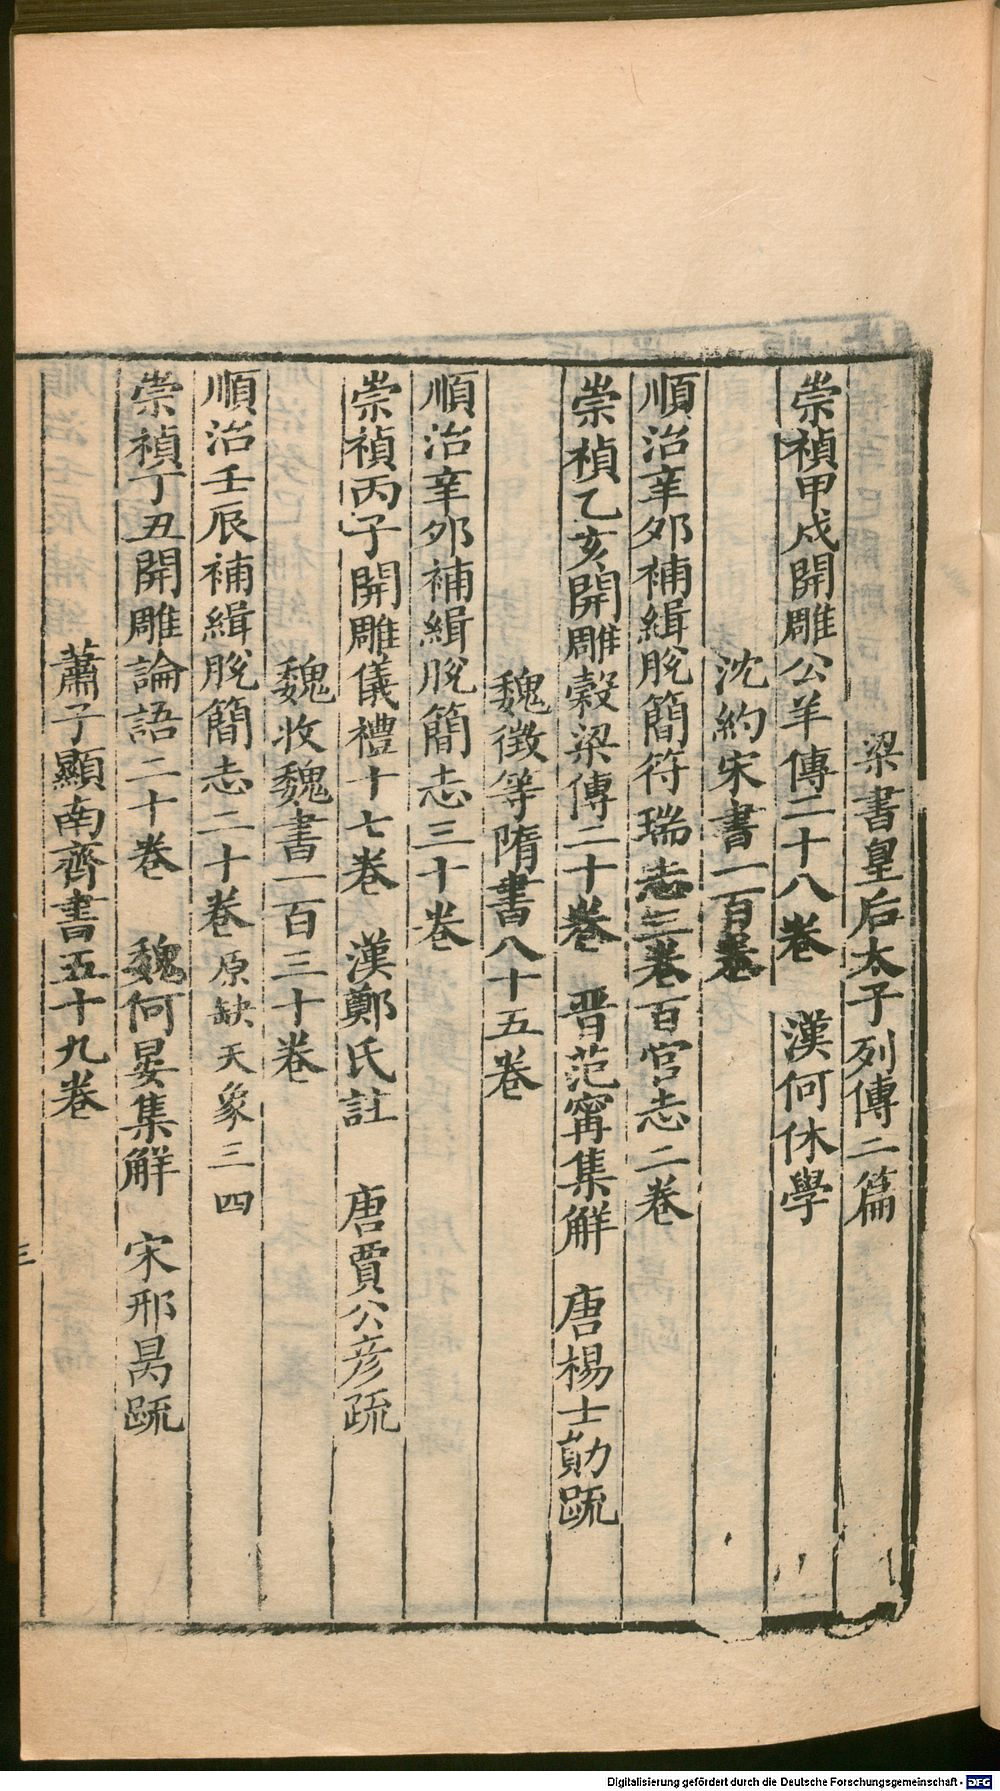 梁書皇后太子列傳二篇
崇禎甲戌開雕公羊傳二十八卷　漢何休學
沈約宋書一百卷
順治辛夘補緝脫簡符瑞志三卷百官志二卷
崇禎乙亥開雕穀梁傳二十卷　晋范甯集解　唐楊士勛䟽
魏徵等隋書八十五卷
順治辛夘補緝脫簡志三十卷
崇禎丙子開雕儀禮十七卷　漢鄭氏註　唐賈公彦疏
魏收魏書一百三十卷
順治壬辰補緝脫簡志二十卷原缺天象三四
崇禎丁丑開雕論語二十卷　魏何晏集解　宋邢昺䟽
蕭子顯南齊書五十九卷
三
Digitalisierung gefördert durch die Deutsche Forschungsgemeinschaft - DFG